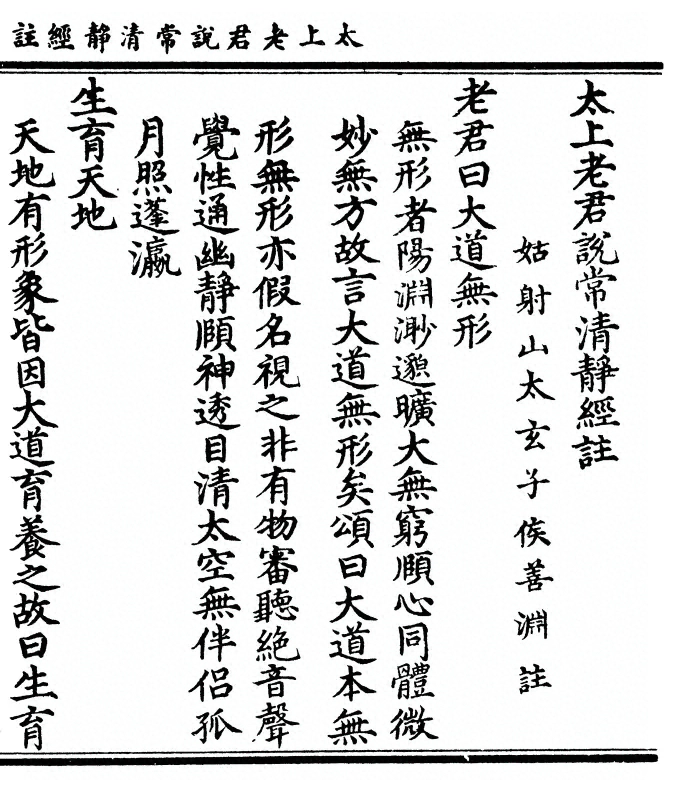 太上老君說常清靜經註
太上老君說常清靜經註
姑射山太玄子侯善淵註
老君曰大道無形
無形者陽淵渺邈曠大無窮頤心同體微
妙無方故言大道無形矣頌曰大道本無
形無形亦假名視之非有物審聽絕音聲
覺性通幽靜頤神透目清太空無伴侶孤
月照蓬瀛
生育天地
天地有形象皆因大道育養之故曰生育